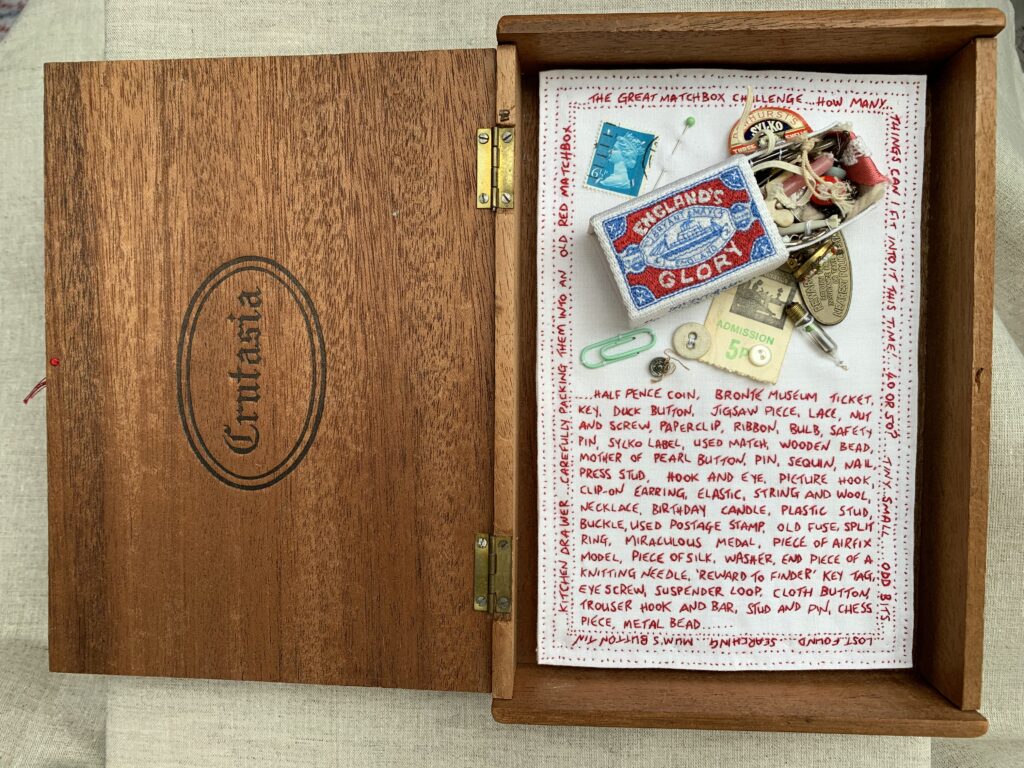 Crutasia
THE GREAT MATCHBOX CHALLENGE...HOW MANY...
THINGS CAN I FIT INTO IT THIS TIME! 40 OR 50? TINY..SMALL...ODD BITS
LOST..FOUND SEARCHING...MUM'S BUTTON TIN
KITCHEN DRAWER...CAREFULLY PACKING THEM INTO AN OLD RED MATCHBOX
6½
SYLKO
THREE
ENGLAND'S
BRYANT & MAY
ENGLAND
GLORY
ADMISSION
5P
....HALF PENCE COIN, BRONTË MUSEUM TICKET,
KEY, DUCK BUTTON, JIGSAW PIECE, LACE, NUT
AND SCREW, PAPERCLIP, RIBBON, BULB, SAFETY
PIN, SYLKO LABEL, USED MATCH, WOODEN BEAD,
MOTHER OF PEARL BUTTON, PIN, SEQUIN, NAIL,
PRESS STUD, HOOK AND EYE, PICTURE HOOK,
CLIP-ON EARRING, ELASTIC, STRING AND WOOL,
NECKLACE, BIRTHDAY CANDLE, PLASTIC STUD,
BUCKLE, USED POSTAGE STAMP, OLD FUSE, SPLIT
RING, MIRACULOUS MEDAL, PIECE OF AIRFIX
MODEL, PIECE OF SILK, WASHER, END PIECE OF A
KNITTING NEEDLE, 'REWARD TO FINDER' KEY TAG,
EYE SCREW, SUSPENDER LOOP, CLOTH BUTTON,
TROUSER HOOK AND BAR, STUD AND PIN, CHESS
PIECE, METAL BEAD......